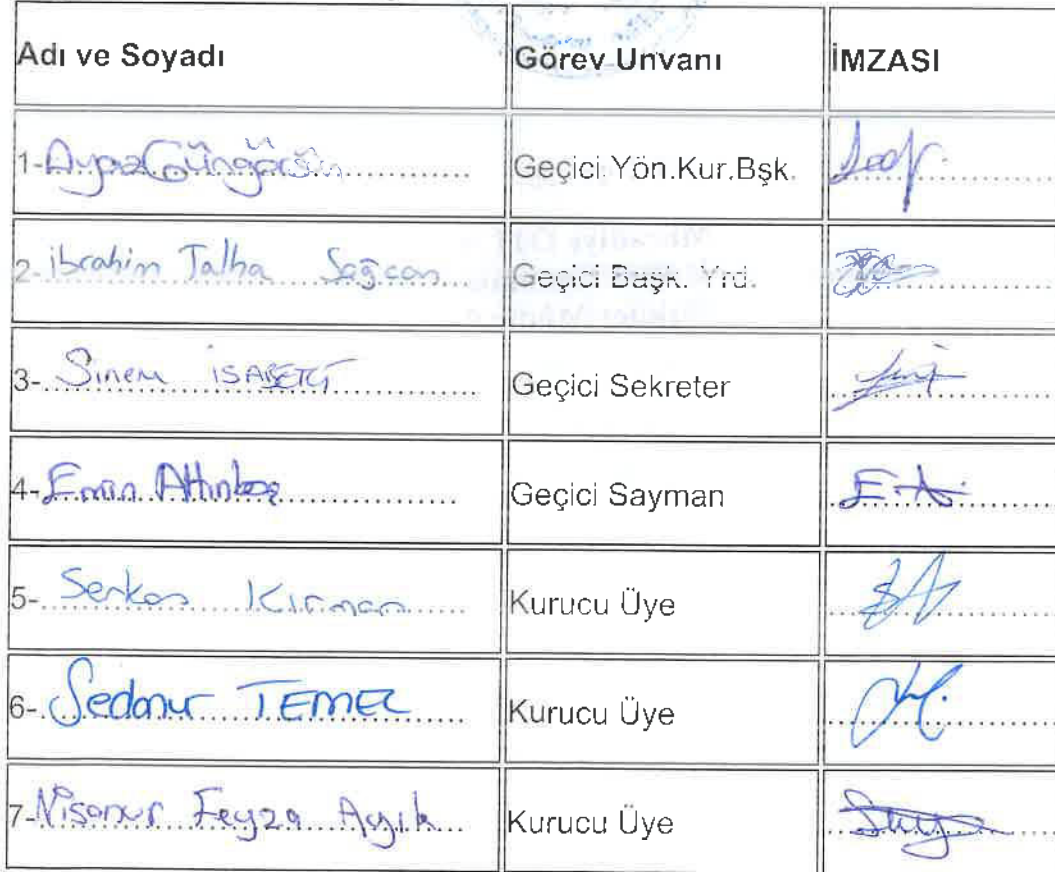 Adı ve Soyadı Görev Unvanı İMZASI
1- Ayaz Güngörsün Geçici Yön.Kur.Bşk.
2- ibrahim Talha Sağcan Geçici Başk. Yrd.
3- Sinem İSABETÇİ Geçici Sekreter
4- Emin Altınbaş Geçici Sayman E.A.
5- Serkan Kırman Kurucu Üye
6- Sedanur TEMEL Kurucu Üye
7- Nisanur Feyza Ayık Kurucu Üye